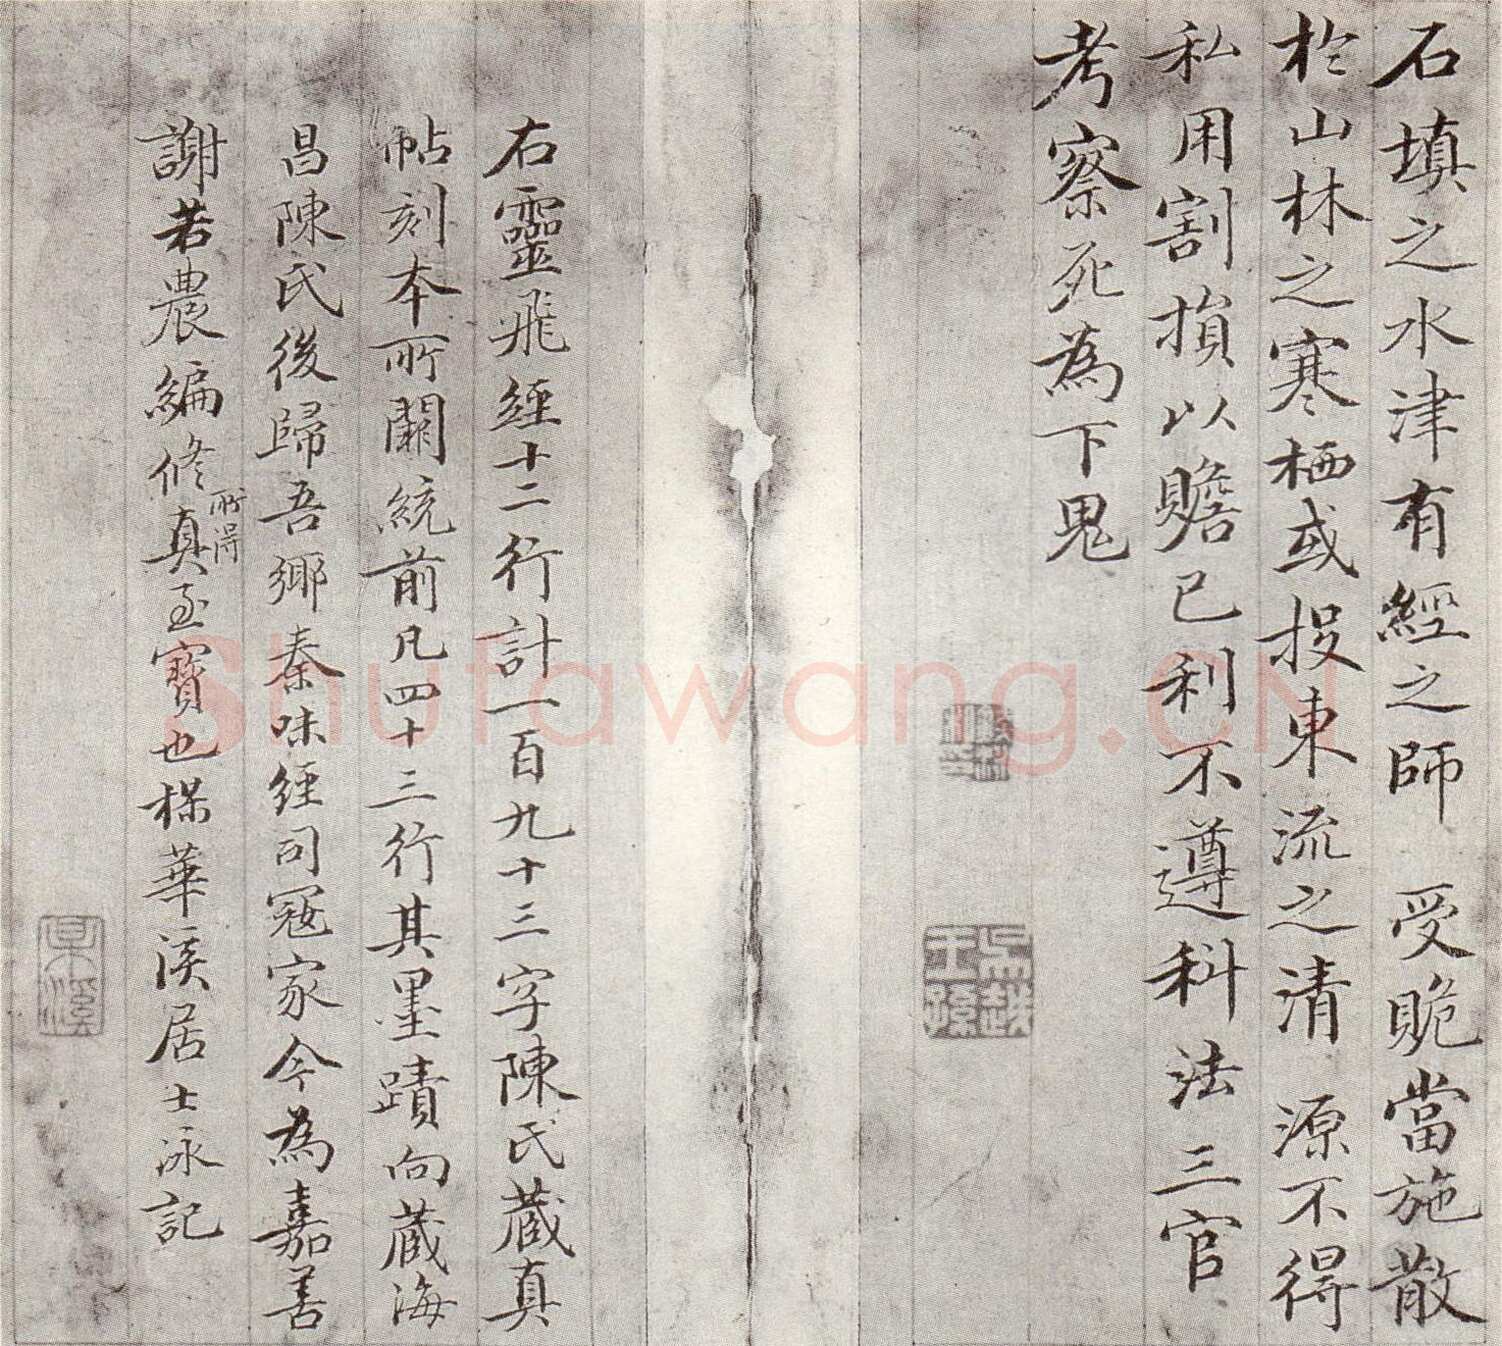 石填之水津有經之師 受賝當施散
於山林之寒栖或投東流之清 源不得
私用割損以贍己利不遵科法三官
考察死為下鬼
右靈飛經十二行計一百九十三字陳氏藏真
帖刻本所闕統前凡四十三行其墨蹟向藏海
昌陳氏後歸吾鄉秦味經司寇家今為嘉善
謝若農編修所得真至寶也楳華溪居士泳記
吳越王孫
Shufawang.CN